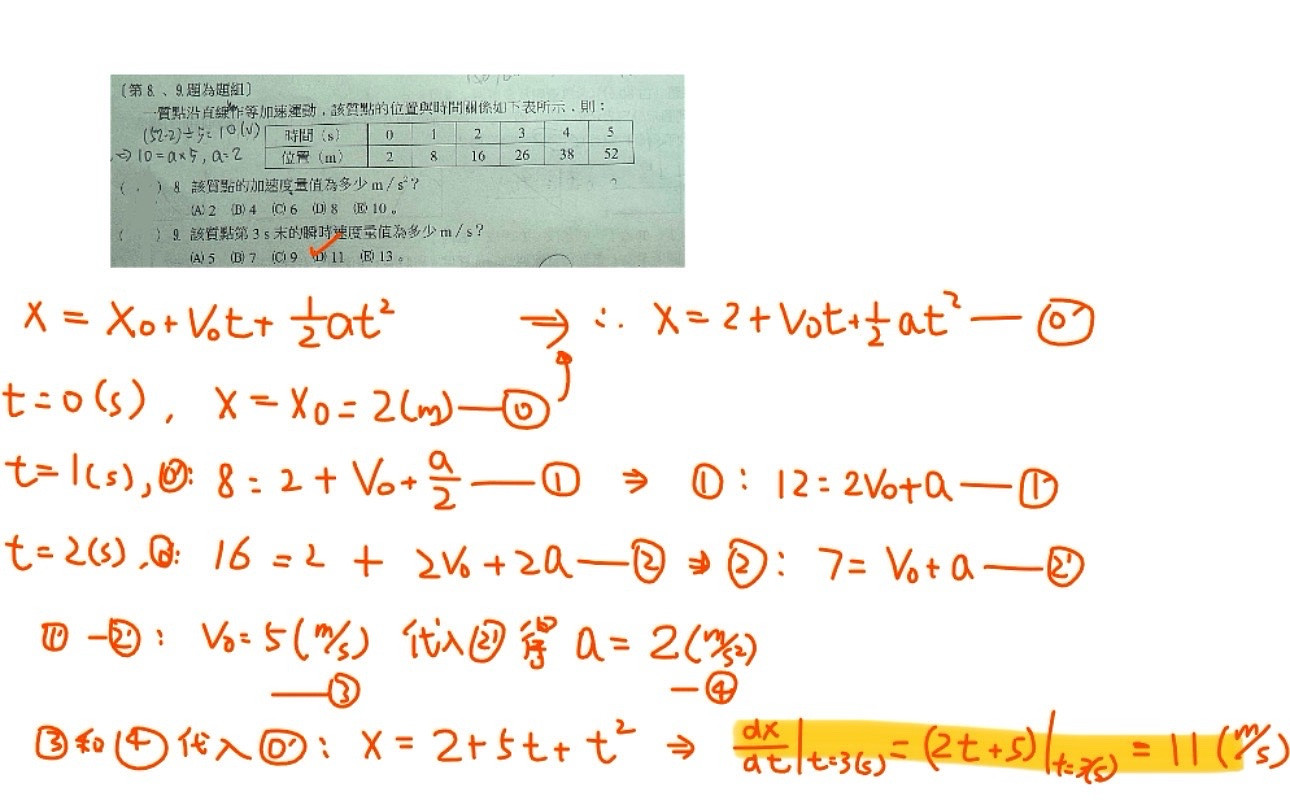 〔第8、9.題為題組〕
一質點沿直線作等加速運動，該質點的位置與時間關係如下表所示，則：
(52-2)÷5=10(V)
⇒10=a×5, a=2
時間（s） 0 1 2 3 4 5
位置（m） 2 8 16 26 38 52
（ ）8. 該質點的加速度量值為多少 m／s²？
(A) 2 (B) 4 (C) 6 (D) 8 (E) 10。
（ ）9. 該質點第 3 s 末的瞬時速度量值為多少 m／s？
(A) 5 (B) 7 (C) 9 (D) 11 (E) 13。
X = X₀ + V₀t + ½at² ⇒ ∴ X = 2 + V₀t + ½at² — ⓪'
t=0(s), X = X₀ = 2(m) — ⓪
t=1(s), ⓪': 8 = 2 + V₀ + a/2 — ① ⇒ ①: 12 = 2V₀ + a — ①'
t=2(s), ⓪': 16 = 2 + 2V₀ + 2a — ② ⇒ ②: 7 = V₀ + a — ②'
①' - ②': V₀ = 5(m/s) 代入②'得 a = 2(m/s²)
— ③ — ④
③和④代入⓪': X = 2 + 5t + t² ⇒ dx/dt|t=3(s) = (2t+5)|t=3(s) = 11(m/s)